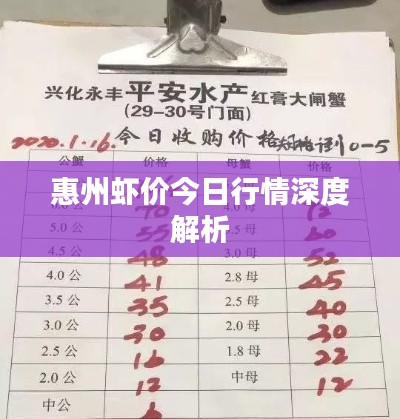 兴化永丰平安水产红膏大闸蟹
(29-30号门面)
2020.1.16.今日收购价格
公蟹 价格 母蟹 价格
惠州虾价今日行情深度
解析
5.0
4.5 48
4.0 公 41 2.8 母 45
3.5 公 35 2.5 母 40
3.0 公 30 2.0 母 30
2.5 公 16 1.8 母 22
2.0 公 12 中母 12
中公